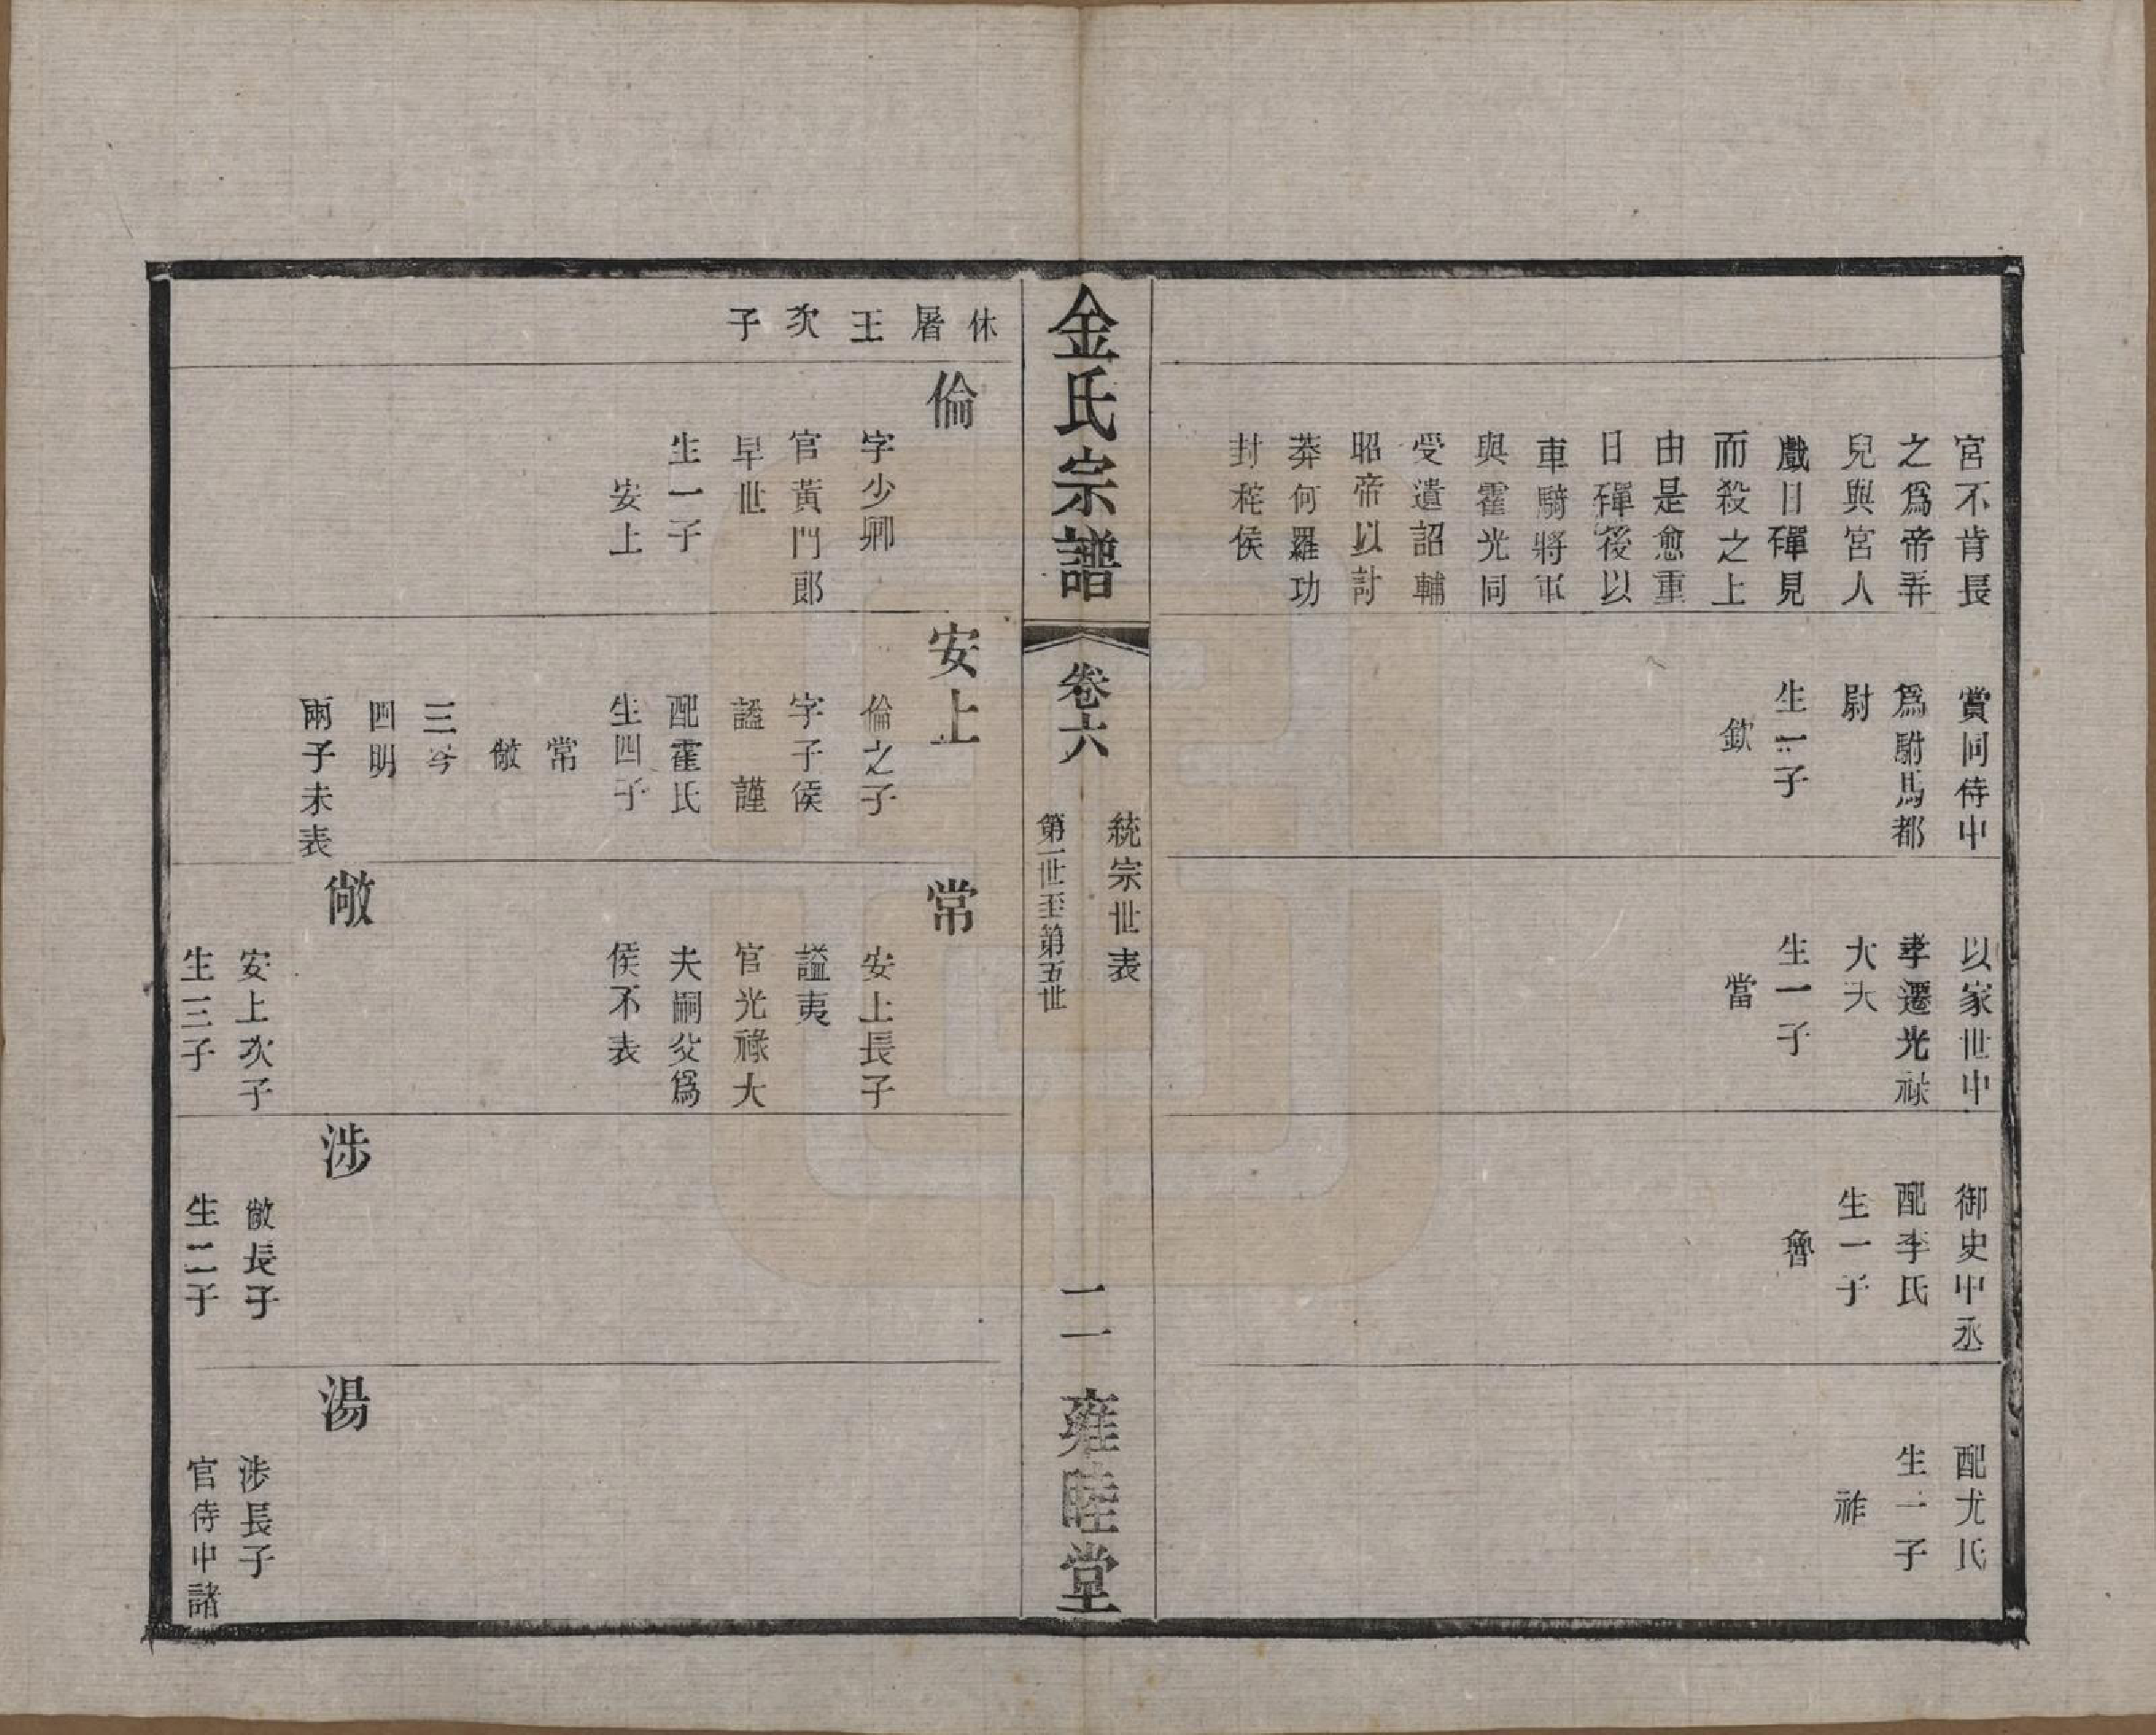 宮不肯長
之爲帝弄
兒與宮人
戲日磾見
而殺之上
由是愈重
日磾後以
車騎將軍
與霍光同
受遺詔輔
昭帝以討
莽何羅功
封秺侯
賞同侍中
爲駙馬都
尉
生一子
欽
以家世中
孝遷光祿
大夫
生一子
當
御史中丞
配李氏
生一子
魯
配尤氏
生一子
祚
金氏宗譜
卷六
統宗世表
第一世至第五世
二
雍睦堂
休
屠
王
次
子
倫
字少卿
官黃門郎
早世
生一子
安上
安上
倫之子
字子侯
諡謹
配霍氏
生四子
常
敞
三岑
四明
兩子未表
常
安上長子
諡夷
官光祿大
夫嗣父爲
侯不表
敞
安上次子
生三子
涉
敞長子
生二子
湯
涉長子
官侍中諸